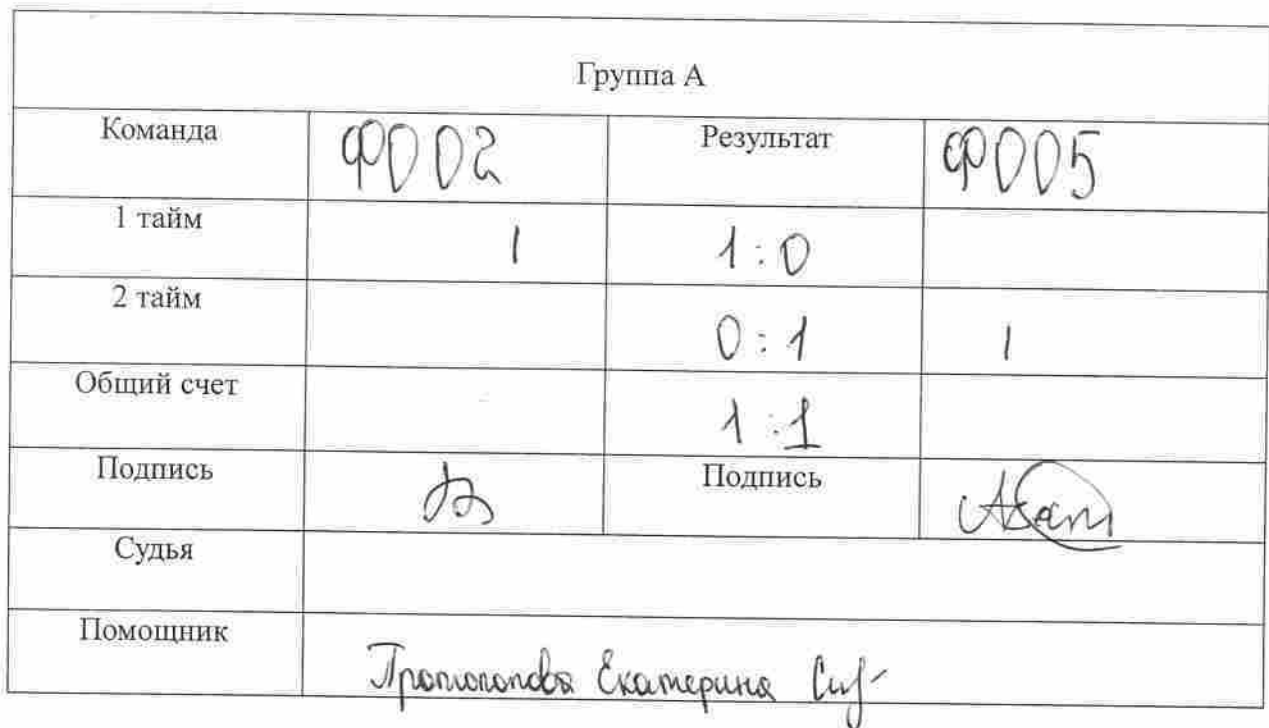 Группа А
Команда Ф002 Результат Ф005
1 тайм 1 1:0
2 тайм 0:1 1
Общий счет 1:1
Подпись Подпись
Судья
Помощник Протопопова Екатерина